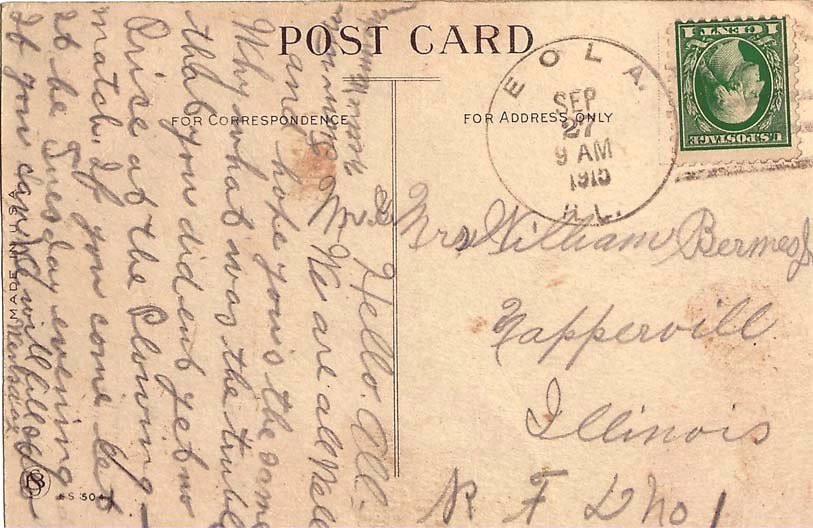 POST CARD
FOR CORRESPONDENCE
FOR ADDRESS ONLY
EOLA
SEP
27
9 AM
1915
ILL.
1 CENT 1
U.S. POSTAGE
Mr & Mrs William Bermes Jr
Nappervill
Illinois
R F D No 1
Hello All:
We are all Well
and hope yours the same
Why what was the truble
that you did ent get no
Prise at the Plowing
match. If you come let
it be Tuesday evening
If you can. I will
MADE IN U.S.A.